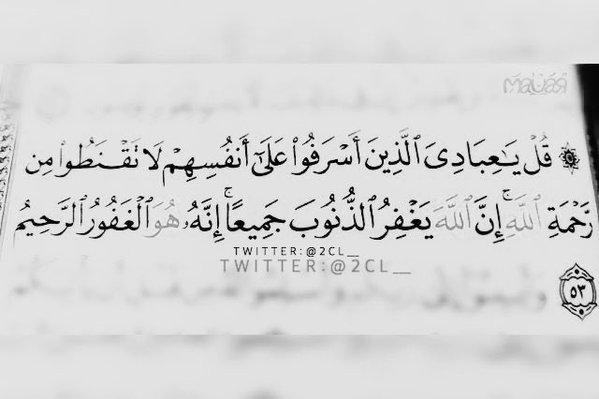 MaUaRi
۞ قُلْ يَـٰعِبَادِىَ ٱلَّذِينَ أَسْرَفُوا۟ عَلَىٰٓ أَنفُسِهِمْ لَا تَقْنَطُوا۟ مِن
رَّحْمَةِ ٱللَّهِ ۚ إِنَّ ٱللَّهَ يَغْفِرُ ٱلذُّنُوبَ جَمِيعًا ۚ إِنَّهُۥ هُوَ ٱلْغَفُورُ ٱلرَّحِيمُ
TWITTER:@2CL__
TWITTER:@2CL__
٥٣